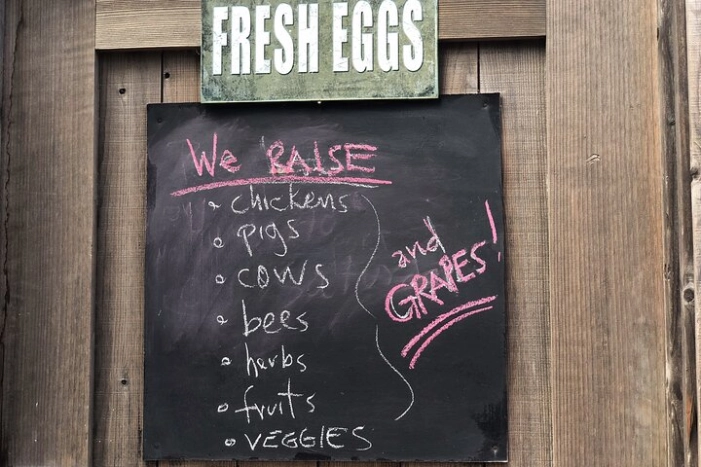 FRESH EGGS
We RAISE
chickens
pigs
cows
bees
herbs
fruits
VEGGIES
and
GRAPES!